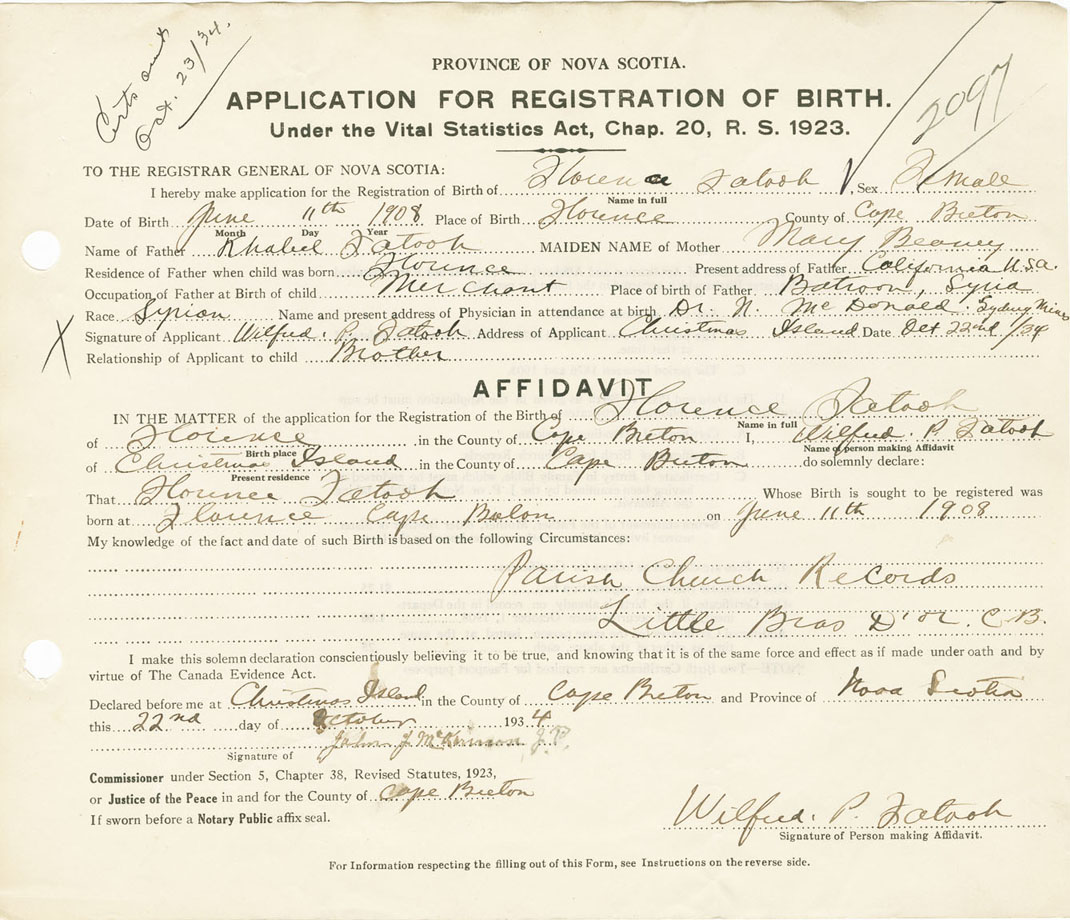 Certs out
Oct. 23/34.
2097
PROVINCE OF NOVA SCOTIA.
APPLICATION FOR REGISTRATION OF BIRTH.
Under the Vital Statistics Act, Chap. 20, R. S. 1923.
TO THE REGISTRAR GENERAL OF NOVA SCOTIA:
I hereby make application for the Registration of Birth of Florence Fatooh Sex Female
Name in full
Date of Birth June 11th 1908 Place of Birth Florence County of Cape Breton
Month Day Year
Name of Father Khaleel Fatooh MAIDEN NAME of Mother Mary Beaney
Residence of Father when child was born Florence Present address of Father California U.S.A.
Occupation of Father at Birth of child Merchant Place of birth of Father Batroon, Syria
Race Syrian Name and present address of Physician in attendance at birth Dr. N. McDonald Sydney Mines
X
Signature of Applicant Wilfred. P. Fatooh Address of Applicant Christmas Island Date Oct 22nd/34
Relationship of Applicant to child Brother
AFFIDAVIT
IN THE MATTER of the application for the Registration of the Birth of Florence Fatooh
Name in full
of Florence in the County of Cape Breton I, Wilfred. P. Fatooh
Birth place Name of person making Affidavit
of Christmas Island in the County of Cape Breton do solemnly declare:
Present residence
That Florence Fatooh Whose Birth is sought to be registered was
born at Florence Cape Breton on June 11th 1908
My knowledge of the fact and date of such Birth is based on the following Circumstances:
Parish Church Records
Little Bras D'or. C.B.
I make this solemn declaration conscientiously believing it to be true, and knowing that it is of the same force and effect as if made under oath and by
virtue of The Canada Evidence Act.
Declared before me at Christmas Island in the County of Cape Breton and Province of Nova Scotia
this 22nd day of October 1934
John J McKinnon, J.P.
Signature of
Commissioner under Section 5, Chapter 38, Revised Statutes, 1923,
or Justice of the Peace in and for the County of Cape Breton
If sworn before a Notary Public affix seal.
Wilfred. P. Fatooh
Signature of Person making Affidavit.
For Information respecting the filling out of this Form, see Instructions on the reverse side.